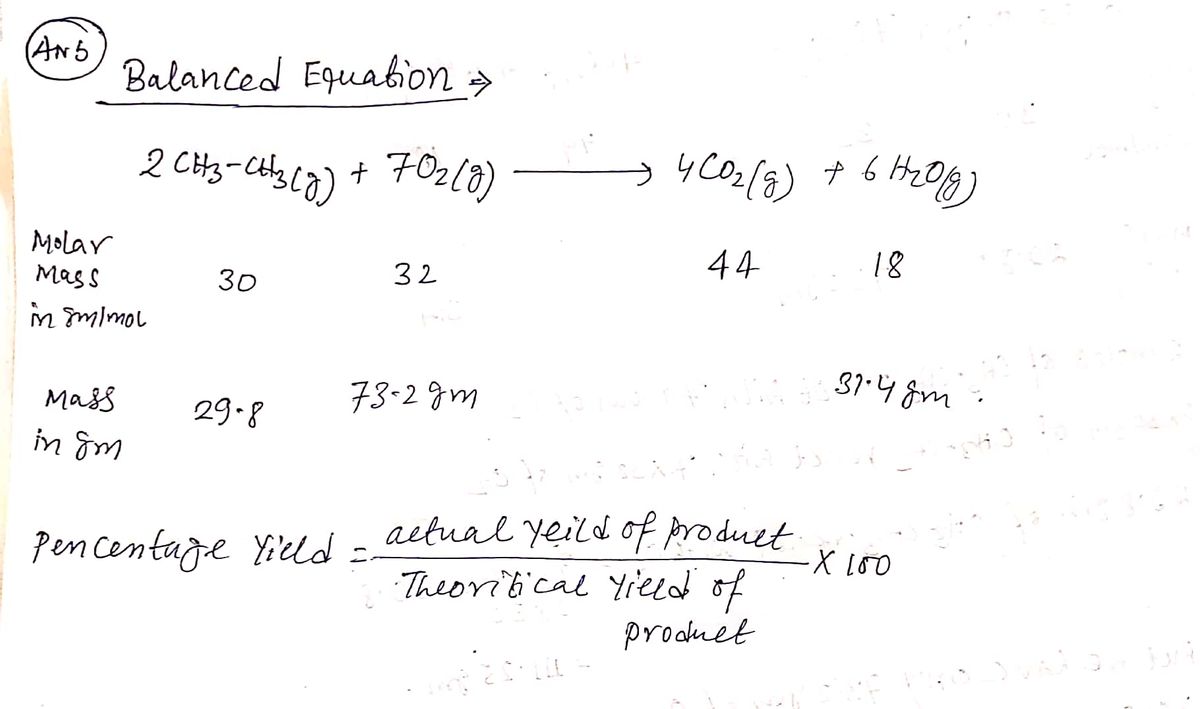 ANS
Balanced Equation ⇒
2 CH3-CH3(g) + 7O2(g) ⟶ 4CO2(g) + 6 H2O(g)
Molar
Mass 30 32 44 18
in gm/mol
Mass 29.8 73.2 gm 37.4 gm.
in gm
Pencentage Yield = actual Yeild of product × 100
Theoritical Yield of
product